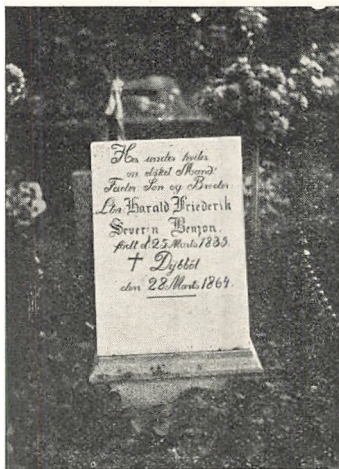 Her under hviler
en elsket Mand
Fader, Søn og Broder
Ltn. Harald Friederik
Severin Benzon.
født d. 25 Marts 1835.
† Dybböl
den 28 Marts 1864.